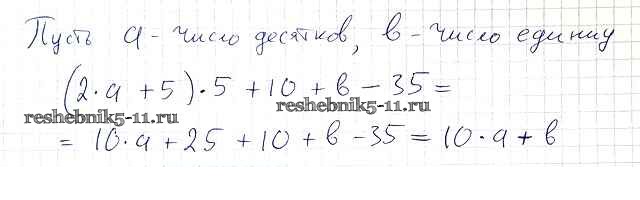 Пусть а - число десятков, в - число единиц
(2·а + 5)·5 + 10 + в - 35 =
reshebnik5-11.ru
reshebnik5-11.ru
= 10·а + 25 + 10 + в - 35 = 10·а + в